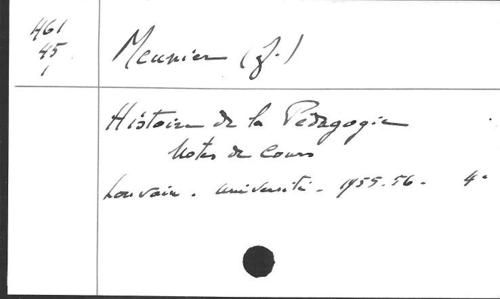 461
45
1
Meunier (J.)
Histoire de la Pédagogie
Notes de Cours
Louvain. Université. 1955-56. 4°